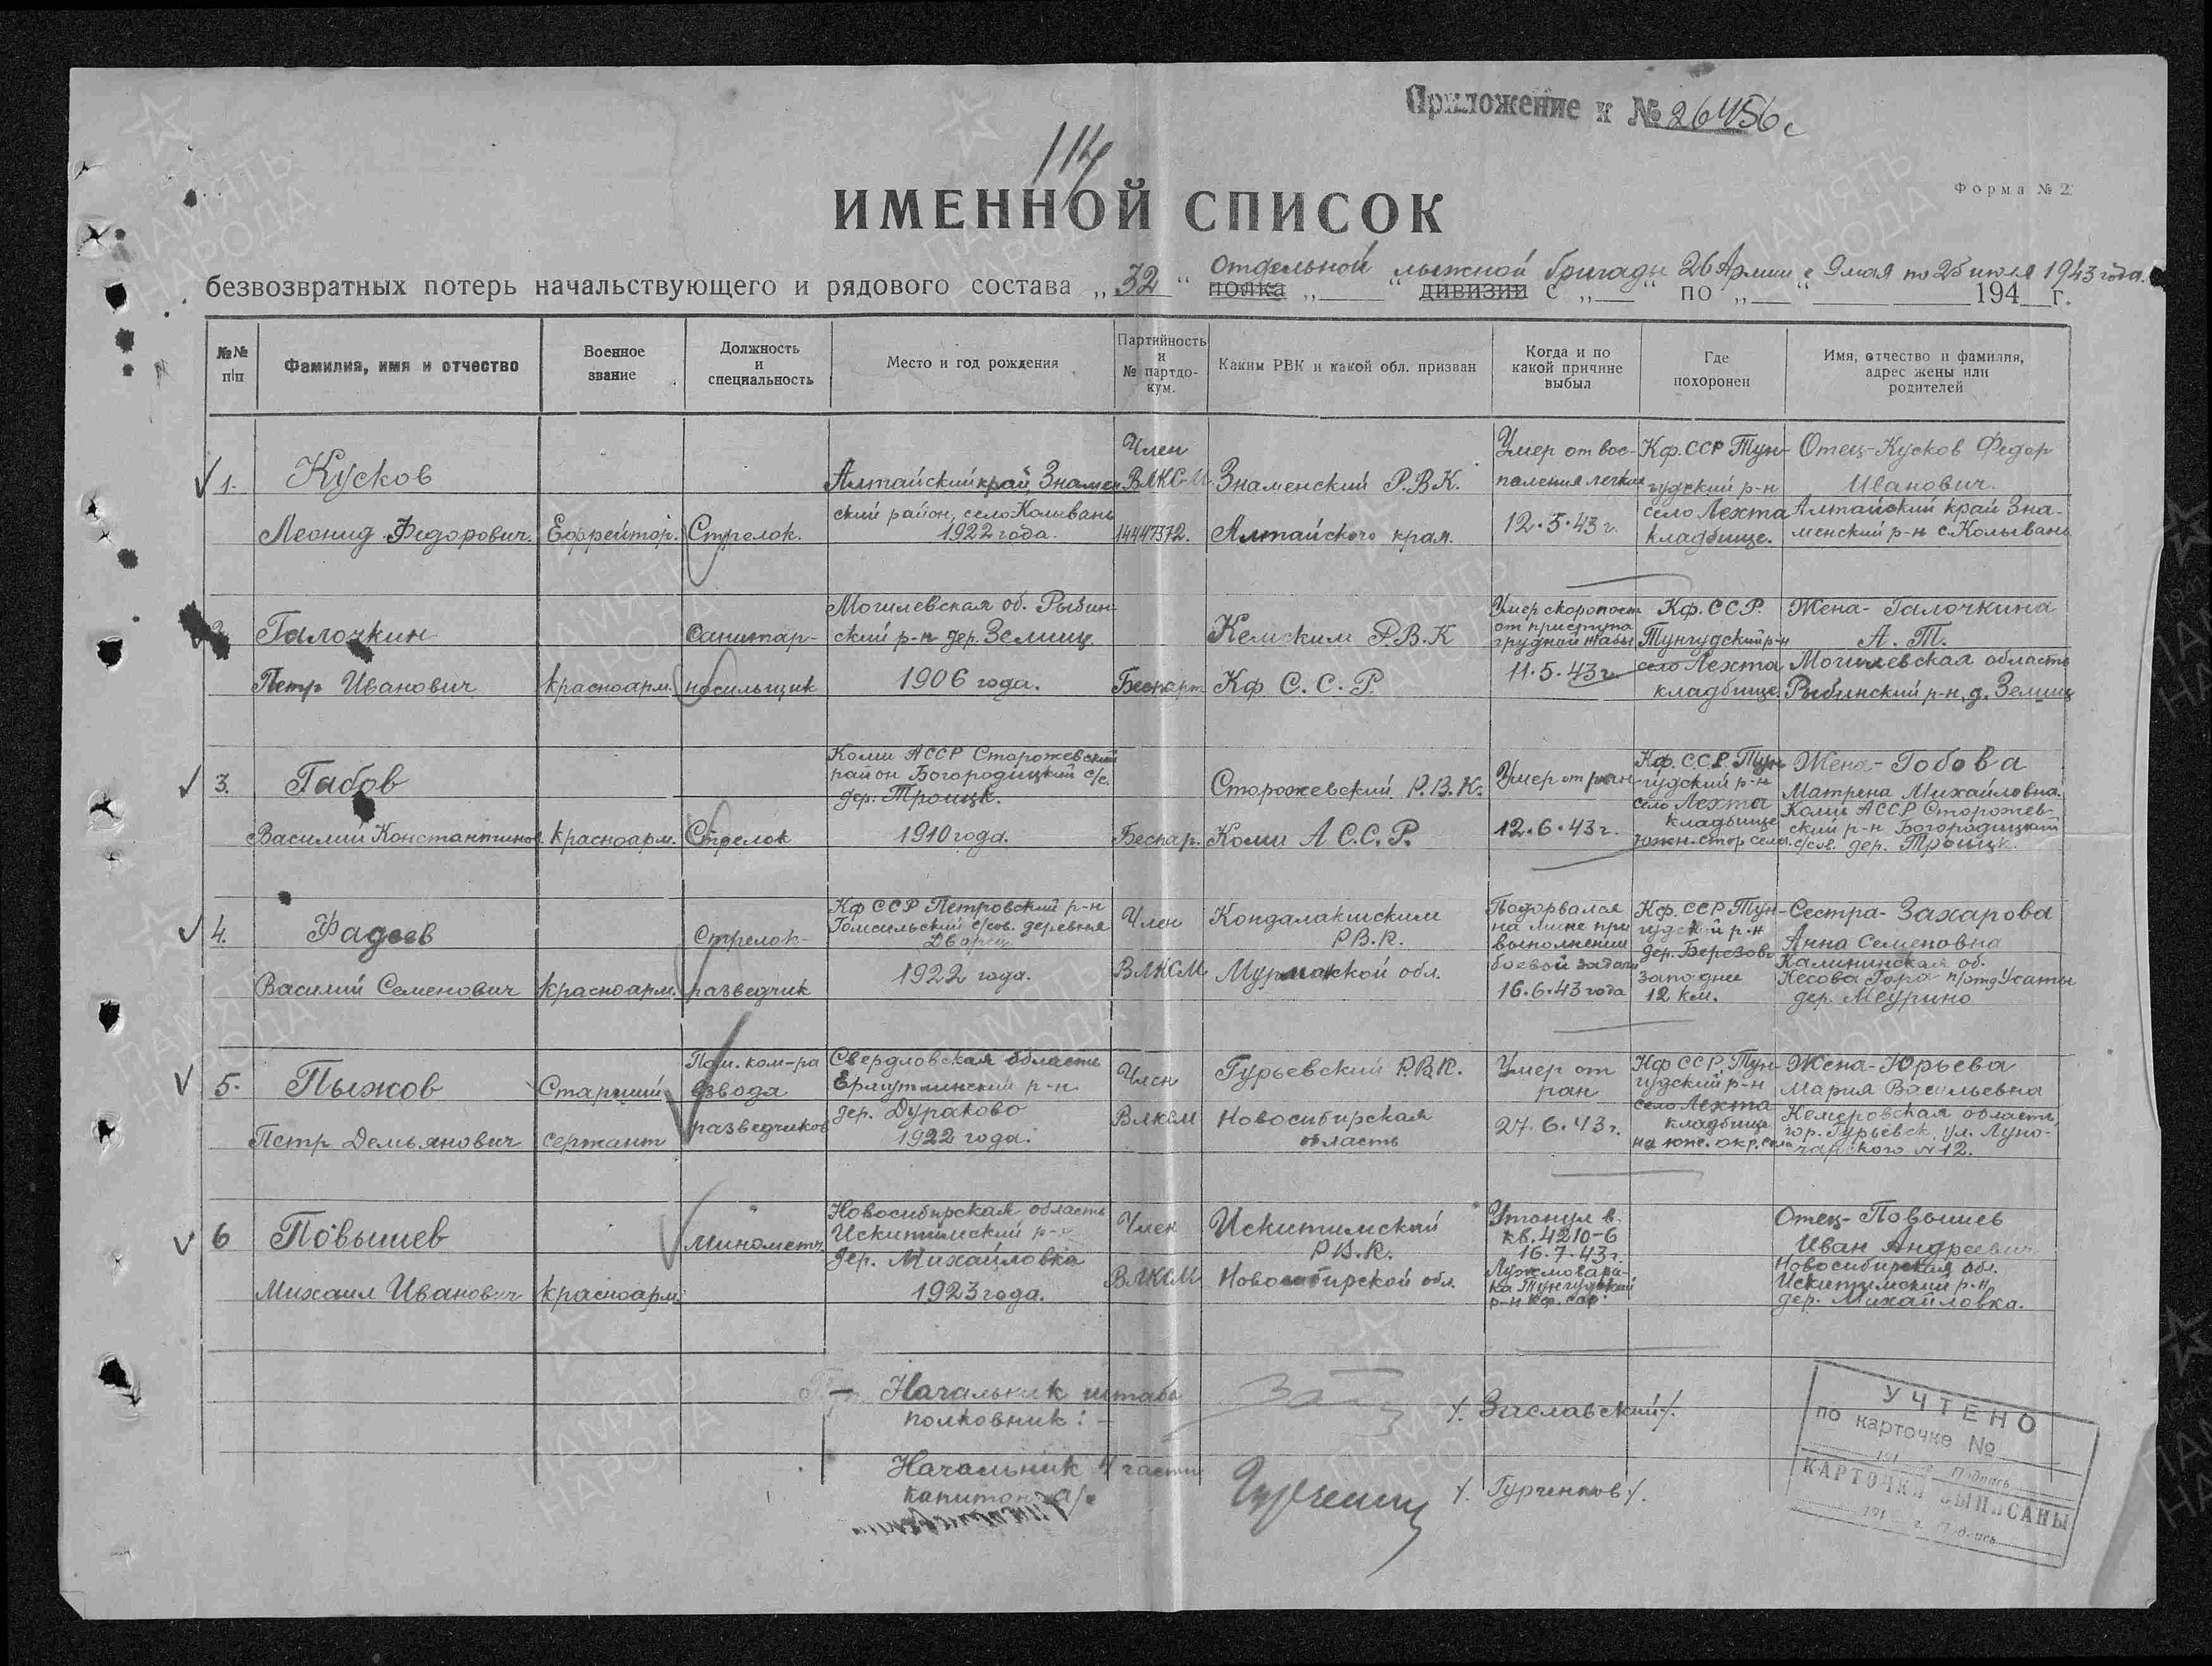 Приложение к № 26456с
114
ИМЕННОЙ СПИСОК
Форма № 2
безвозвратных потерь начальствующего и рядового состава „32" Отдельной лыжной бригады 26 Армии с 9 мая по 25 июля 1943 года.
полка „ " дивизии с „ " по „ " 194 г.
№№ п/п
Фамилия, имя и отчество
Военное звание
Должность и специальность
Место и год рождения
Партийность и № партдокум.
Каким РВК и какой обл. призван
Когда и по какой причине выбыл
Где похоронен
Имя, отчество и фамилия, адрес жены или родителей
1.
Кусков
Леонид Федорович.
Ефрейтор.
Стрелок.
Алтайский край, Знамен
ский район, село Колывань
1922 года.
Член
ВЛКСМ
14447372.
Знаменский Р.В.К.
Алтайского края.
Умер от вос-
паления легких
12.5.43 г.
Кф. ССР Тун-
гудский р-н
село Лехта
кладбище.
Отец-Кусков Федор
Иванович.
Алтайский край Зна-
менский р-н с. Колывань
2
Галочкин
Петр Иванович
красноарм.
Санитар-
носильщик
Могилевская об. Рыбин-
ский р-н дер. Земищ
1906 года.
Беспарт
Кемским Р.В.К
Кф С.С.Р.
Умер скоропост
от приступа
грудной жабы
11.5.43 г.
Кф. ССР.
Тунгудский р-н
село Лехта
кладбище.
Жена-Галочкина
А. Т.
Могилевская область
Рыбинский р-н, д. Земищ
3.
Габов
Василий Константинов.
красноарм.
Стрелок
Коми АССР Сторожевский
район Богородицкий с/с.
дер. Троицк.
1910 года.
Беспар.
Сторожевский Р.В.К.
Коми А С.С.Р.
Умер от ран
12.6.43 г.
Кф. С.С.Р. Тун
гудский р-н
село Лехта
кладбище
южн. стор села.
Жена-Гобова
Матрена Михайловна.
Коми АССР Сторожев-
ский р-н Богородицкий
с/сов. дер. Троицк.
4.
Фадеев
Василий Семенович
красноарм.
Стрелок-
разведчик
Кф ССР Петровский р-н
с/сов. деревня
Дворец
1922 года.
Член
ВЛКСМ
Кондалакшским
РВ.К.
Мурманской обл.
Подорвался
на мине при
выполнении
боевой задачи
16.6.43 года
Кф. ССР Тун-
гудский р-н
дер. Березово
западнее
12 км.
Сестра-Захарова
Анна Семеновна
Калининская об.
Кесова Гора п/отд Усаты
дер. Меурино
5.
Пыжов
Петр Демьянович
Старший
сержант
Пом. ком-ра
взвода
разведчиков
Свердловская область
р-н
дер. Дураково
1922 года.
Член
ВЛКСМ
Гурьевский Р.В.К.
Новосибирская
область
Умер от
ран
27.6.43 г.
Кф ССР, Тун
гудский р-н
село Лехта
кладбище
на юж. окр. села
Жена-Юрьева
Мария Васильевна
Кемеровская область,
гор. Гурьевск, ул. Луно-
чарского №12.
6
Повышев
Михаил Иванович
красноарм.
Минометч.
Новосибирская область
Искитимский р-н
дер. Михайловка
1923 года.
Член
ВЛКСМ
Искитимский
Р.В.К.
Новосибирской обл.
Утонул в
кв. 4210-6
16.7.43 г.
Тунгудский
р-н Кф. ССР.
Отец-Повышев
Иван Андреевич
Новосибирская обл.
Искитимский р-н,
дер. Михайловка.
Начальник штаба
полковник: - /. Заславский/.
Начальник 4 части
капитан а/с /. Гурченков/.
УЧТЕНО
по карточке №
194 г. Подпись
КАРТОЧКИ ВЫПИСАНЫ
194 г. Подпись
ПАМЯТЬ НАРОДА